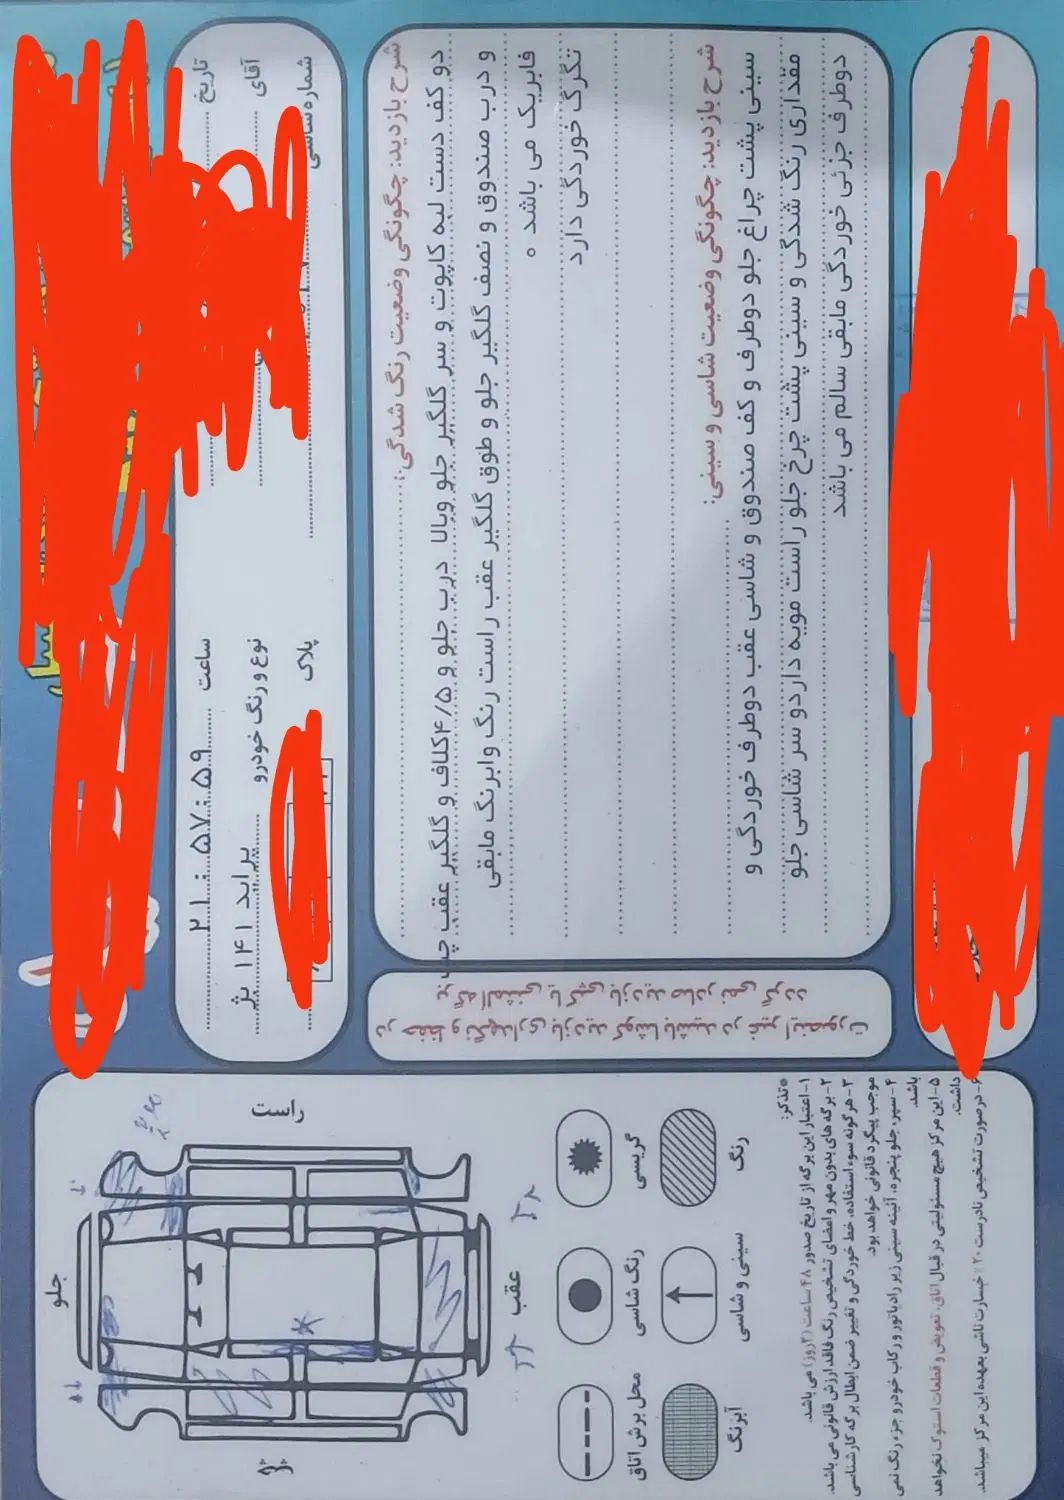 تاریخ
ساعت ۲۱:۵۷:۵۹
آقای
نوع و رنگ خودرو پراید ۱۴۱ بژ
شماره شاسی
پلاک
شرح بازدید: چگونگی وضعیت رنگ شدگی:
دو کف دست لبه کاپوت و سر گلگیر جلو وبالا درب جلو و ۴/۵کلاف و گلگیر عقب چپ
و درب صندوق و نصف گلگیر جلو و طوق گلگیر عقب راست رنگ وابرنگ مابقی
فابریک می باشد ه
تگرگ خوردگی دارد
شرح بازدید: چگونگی وضعیت شاسی و سینی:
سینی پشت چراغ جلو دوطرف و کف صندوق و شاسی عقب دوطرف خوردگی و
مقداری رنگ شدگی و سینی پشت چرخ جلو راست مویه داردو سر شاسی جلو
دوطرف جزئی خوردگی مابقی سالم می باشد
در حفظ و نگهداری بازدید کوشا باشید در غیر اینصورت
برگه المثنی یا کپی بازدید صادر نمی گردد
جلو
راست
عقب
گریسی
رنگ شاسی
محل برش اتاق
رنگ
سینی و شاسی
آبرنگ
*تذکر:
۱-اعتبار این برگه از تاریخ صدور ۴۸ ساعت (۲روز) می باشد.
۲-برگه های بدون مهر و امضای تشخیص رنگ فاقد ارزش قانونی می باشد.
۳-هرگونه سوء استفاده، خط خوردگی و تغییر ضمن ابطال برگه کارشناسی
موجب پیگرد قانونی خواهد بود.
۴-سپر، جلو پنجره، آئینه سینی زیر رادیاتور و رکاب خودرو جزء رنگ نمی
باشد.
۵-این مرکز هیچ مسئولیتی در قبال اتاق، تعویض و قطعات استوک نخواهد
داشت.
۶-درصورت تشخیص نادرست ۲۰٪ خسارت ناشی بعهده این مرکز میباشد.